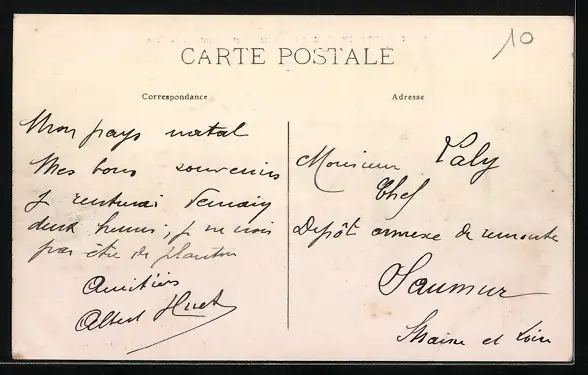 10
CARTE POSTALE
Correspondance
Adresse
Mon pays natal
Mes bons souvenirs
Je rentrerai demain
deux heures, je ne vois
pas être de planton
Amitiés
Albert Huet
Monsieur Valy
Chef
Depôt annexe de remonte
Saumur
Maine et Loire